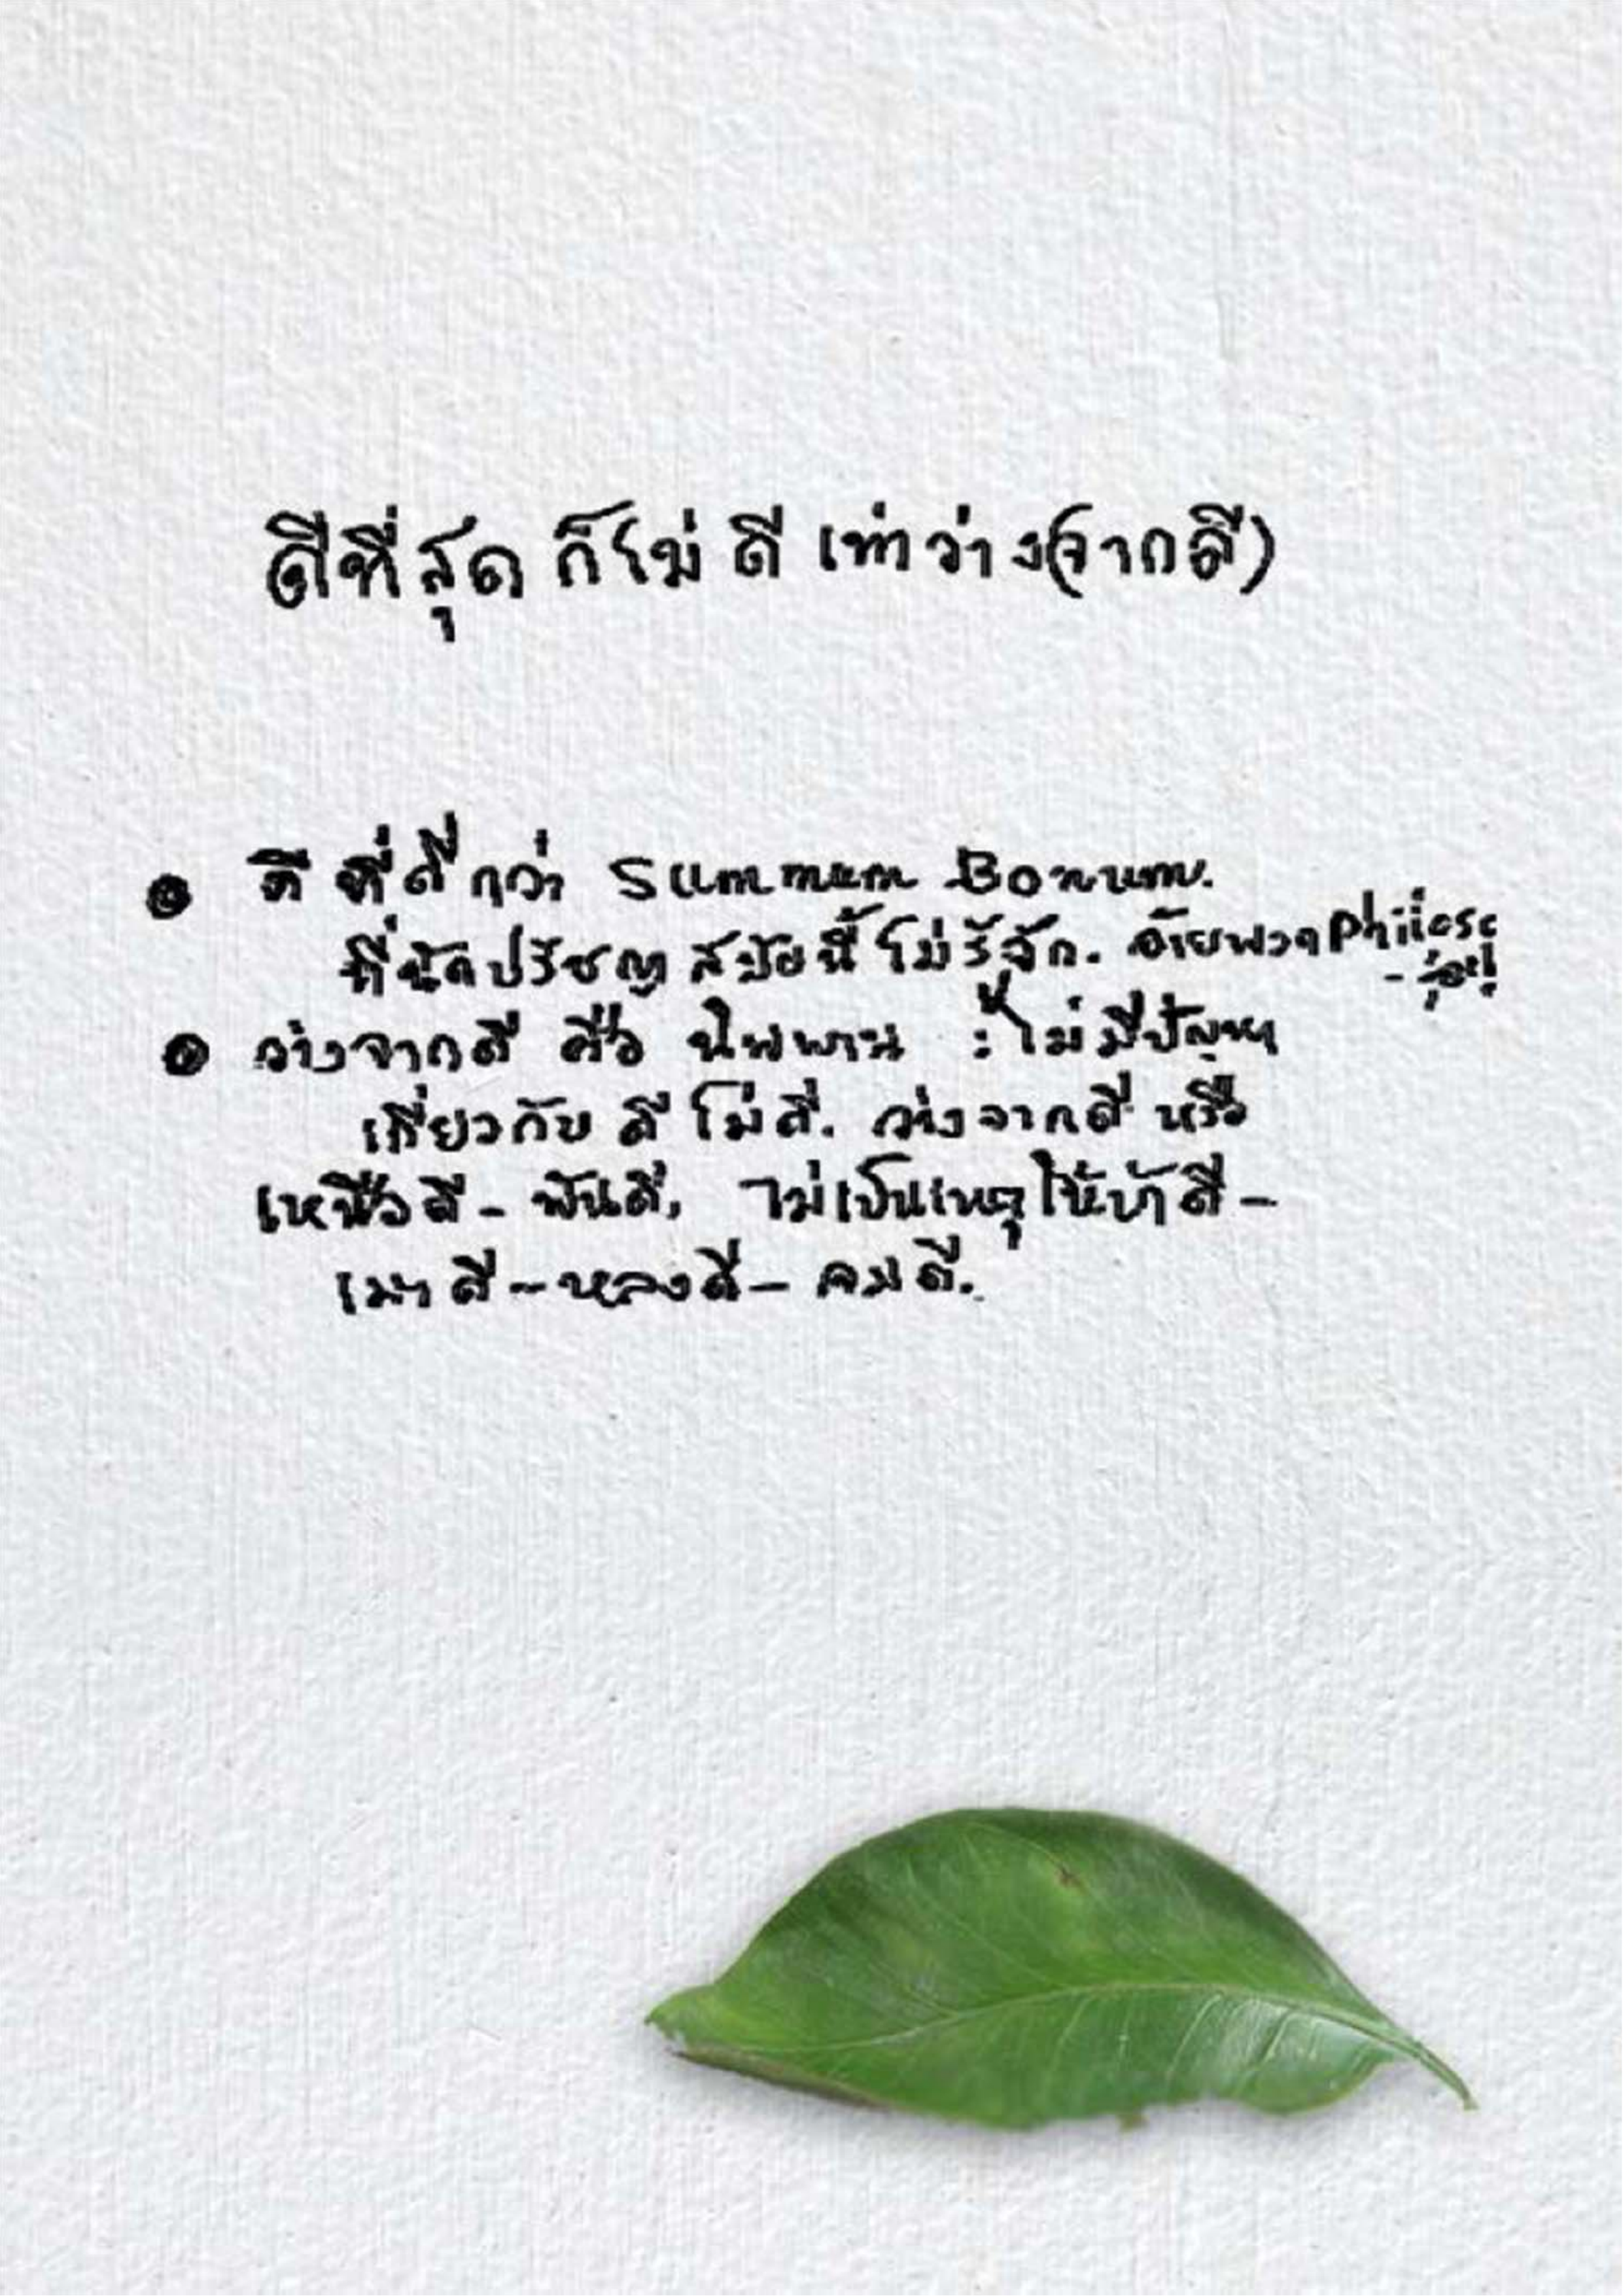 ดีที่สุด ก็ไม่ ดี เท่าว่าง(จากดี)
ดี ที่ดีกว่า Summum Bonum.
ที่นักปรัชญาสมัยนี้ ไม่รู้จัก. อ้ายพวก Philoso
ว่างจากดี คือ นิพพาน : ไม่มีปัญหา
เกี่ยวกับ ดี ไม่ดี. ว่างจากดี หรือ
เหนือดี - พ้นดี, ไม่เป็นเหตุให้บ้าดี -
เมาดี - หลงดี - จมดี.